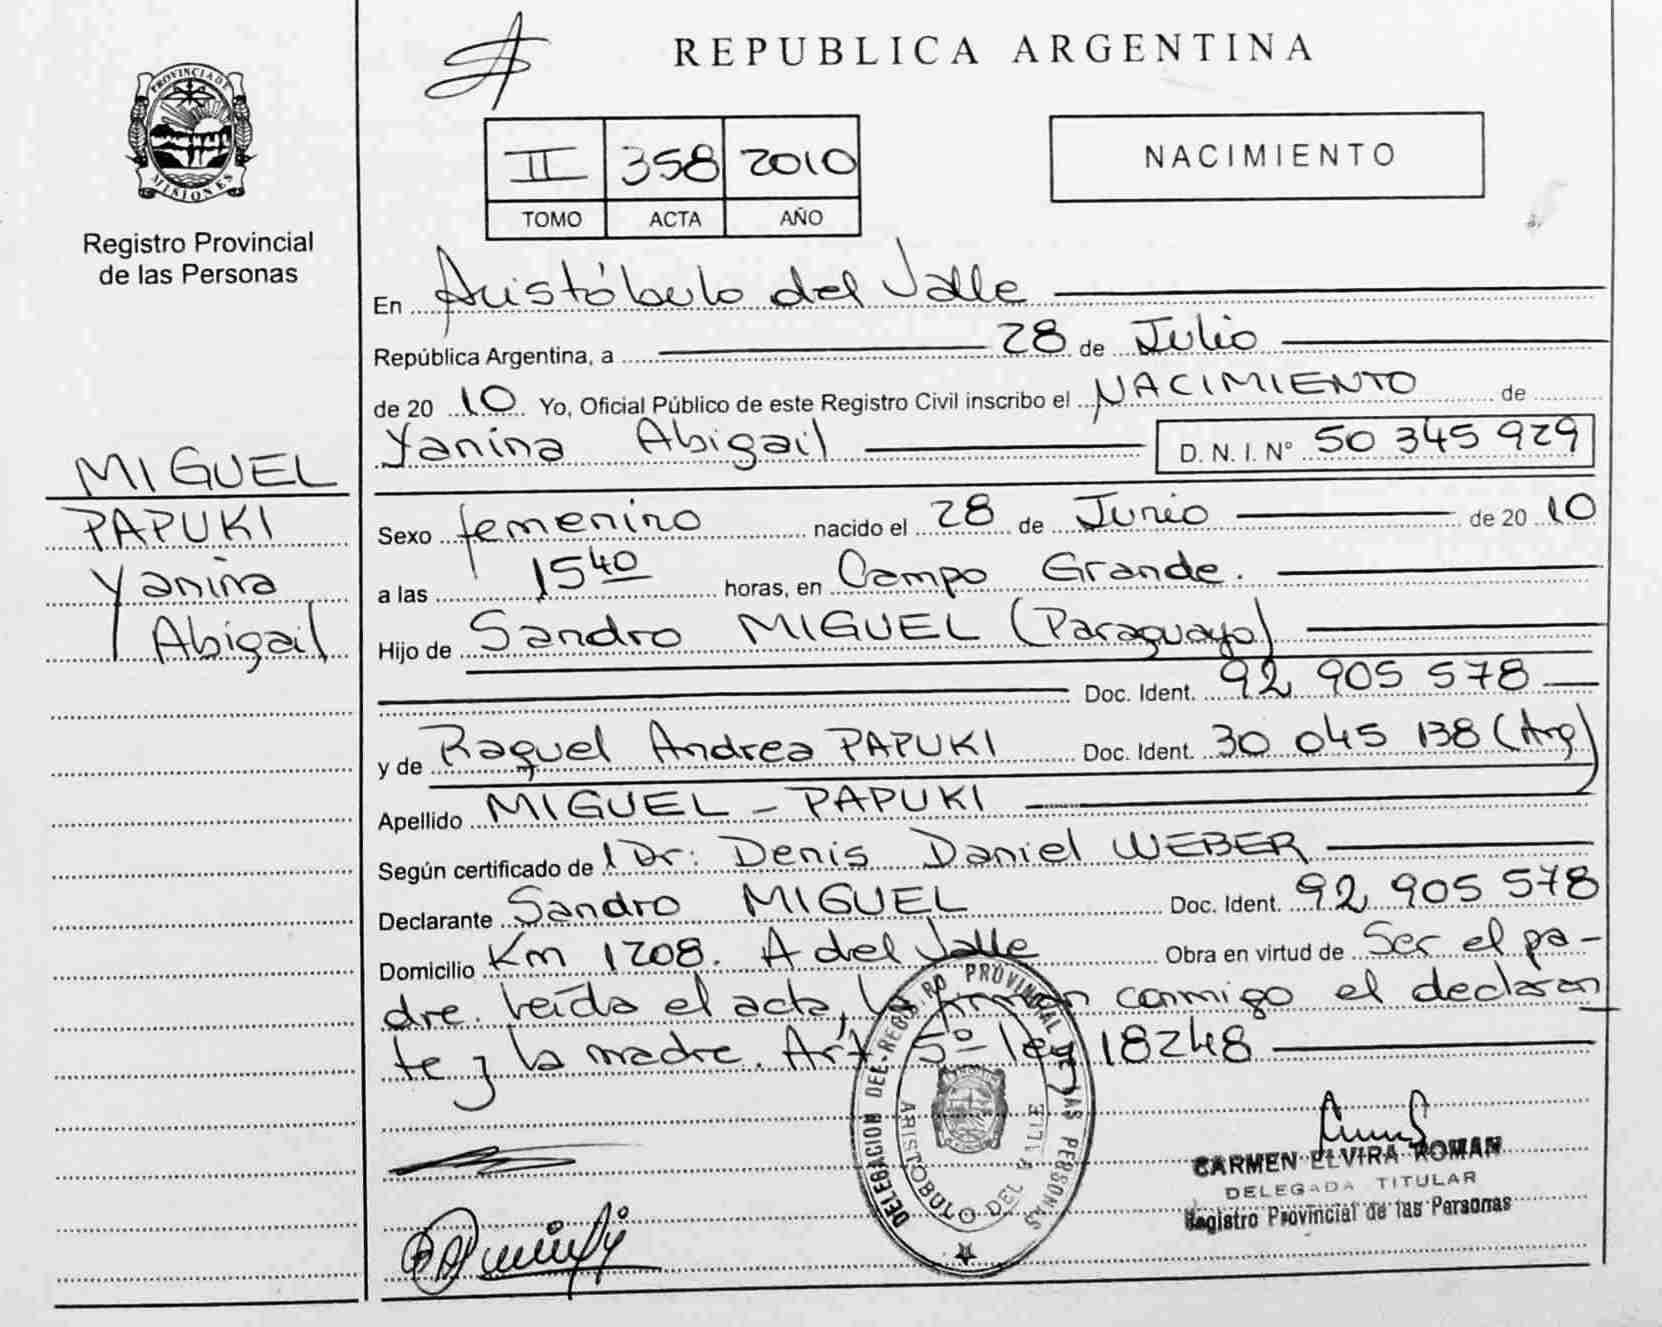 REPUBLICA ARGENTINA
PROVINCIA DE
MISIONES
Registro Provincial
de las Personas
II 358 2010
TOMO ACTA AÑO
NACIMIENTO
En Aristóbulo del Valle
República Argentina, a 28 de Julio
de 20 10 Yo, Oficial Público de este Registro Civil inscribo el NACIMIENTO de
Yanina Abigail D. N. I. N° 50 345 929
MIGUEL
PAPUKI
Yanina
Abigail
Sexo femenino nacido el 28 de Junio de 20 10
a las 15 40 horas, en Campo Grande.
Hijo de Sandro MIGUEL (Paraguayo)
Doc. Ident. 92 905 578
y de Raquel Andrea PAPUKI Doc. Ident. 30 045 138 (Arg)
Apellido MIGUEL - PAPUKI
Según certificado de l Dr: Denis Daniel WEBER
Declarante Sandro MIGUEL Doc. Ident. 92 905 578
Domicilio Km 1208. A del Valle Obra en virtud de Ser el pa-
dre. Leída el acta, la firman conmigo el declaran
te y la madre. Art 5º ley 18248
DELEGACION DEL REGISTRO PROVINCIAL DE LAS PERSONAS
ARISTOBULO DEL VALLE
CARMEN ELVIRA ROMAN
DELEGADA TITULAR
Registro Provincial de las Personas